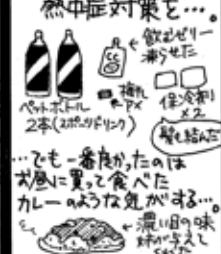 熱中症対策を…。
飲むゼリー
凍らせた
梅礼
PX
保冷剤
×2
ペットボトル
2本(スポーツドリンク)
髪も結んだ
…でも一番良かったのは
お昼に買って食べた
カレーのような気がする…。
濃い目の味